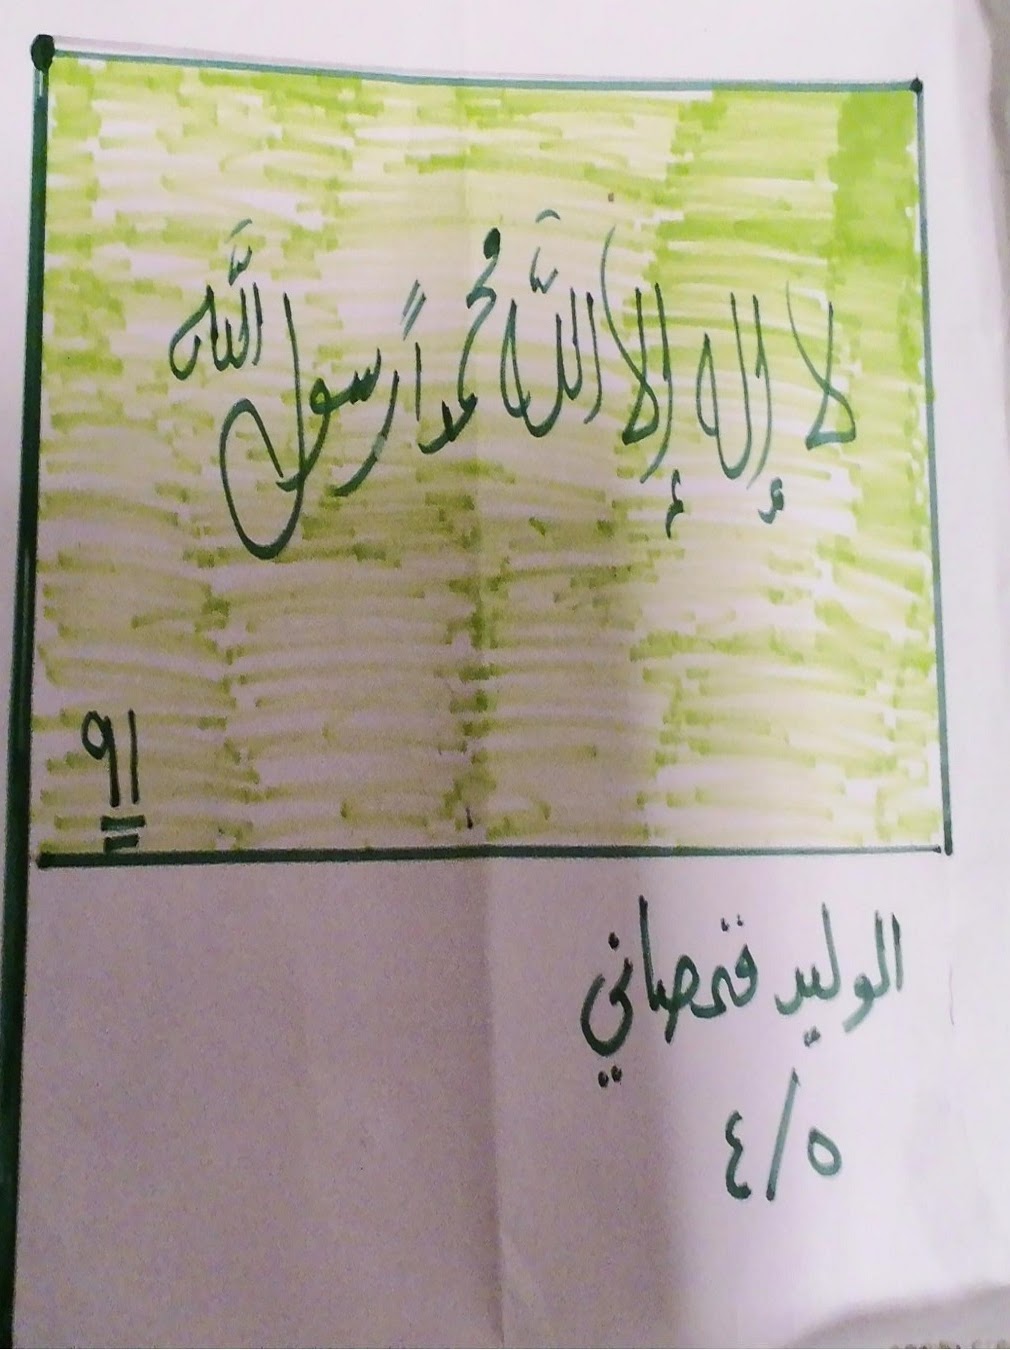 لا إله إلا اللّه محمداً رسول اللّه
٩١
الوليد قمصاني
٤/٥